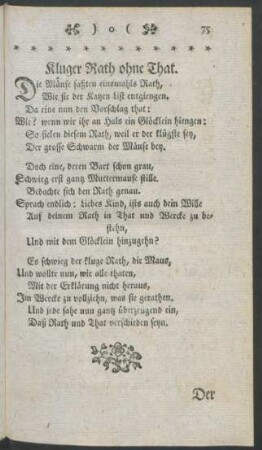 ) o (
75
Kluger Rath ohne That.
Die Mäuse faßten einsmahls Rath,
Wie sie der Katzen List entgiengen.
Da eine nun den Vorschlag that:
Wie? wenn wir ihr an Hals ein Glöcklein hiengen:
So fielen diesem Rath, weil er der klügste sey,
Der grosse Schwarm der Mäuse bey.
Doch eine, deren Bart schon grau,
Schwieg erst gantz Muttermause stille.
Bedachte sich den Rath genau.
Sprach endlich: Liebes Kind, ists auch dein Wille
Auf deinem Rath in That und Wercke zu be-
stehn,
Und mit dem Glöcklein hinzugehn?
Es schwieg der kluge Rath, die Maus,
Und wollte nun, wie alle thaten,
Mit der Erklärung nicht heraus,
Im Wercke zu vollziehn, was sie gerathen.
Und jede sahe nun gantz überzeugend ein,
Daß Rath und That verschieden seyn.
Der